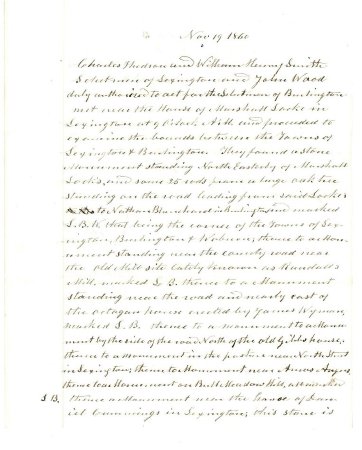 Nov 19 1860
Charles Hudson and William Henry Smith
Selectmen of Lexington and John Wood
duly authorized to act for the Selectmen of Burlington
met near the House of Marshall Locke in
Lexington at 9 O'clock A.M. and proceeded to
examine the bounds between the Towns of
Lexington & Burlington. They found a Stone
Monument standing North Easterly of Marshall
Locks, and some 25 rods from a large oak tree
standing on the road leading from said Locke's
to Nathan Blanchard in Burlington marked
L. B. W. that being the corner of the Towns of Lex-
ington, Burlington & Woburn; thence to a Monu-
ment standing near the county road near
the old Mill site lately known as
Mill, marked L. B. thence to a Monument
standing near the road and nearly east of
the octagon house erected by James Wyman,
marked L. B. thence to a monument to a Monu-
ment by the side of the road North of the old house,
thence to a monument in the pasture near North Street
in Lexington; thence to Monument near Amos
thence to a Monument on Meadow Hill,
L B. thence a Monument near the house of Dan-
iel Cummings in Lexington; this stone is